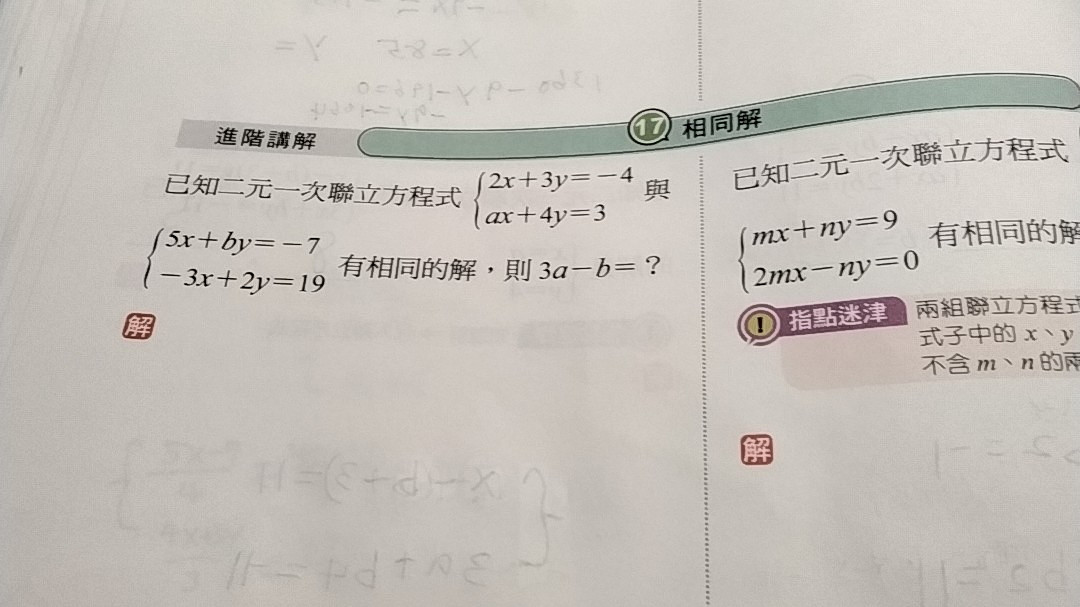 進階講解
17 相同解
已知二元一次聯立方程式 { 2x+3y=-4 與
ax+4y=3
{ 5x+by=-7
-3x+2y=19 有相同的解，則 3a-b=？
解
已知二元一次聯立方程式
{ mx+ny=9 有相同的解
2mx-ny=0
! 指點迷津 兩組聯立方程式
式子中的 x、y
不含 m、n 的兩
解